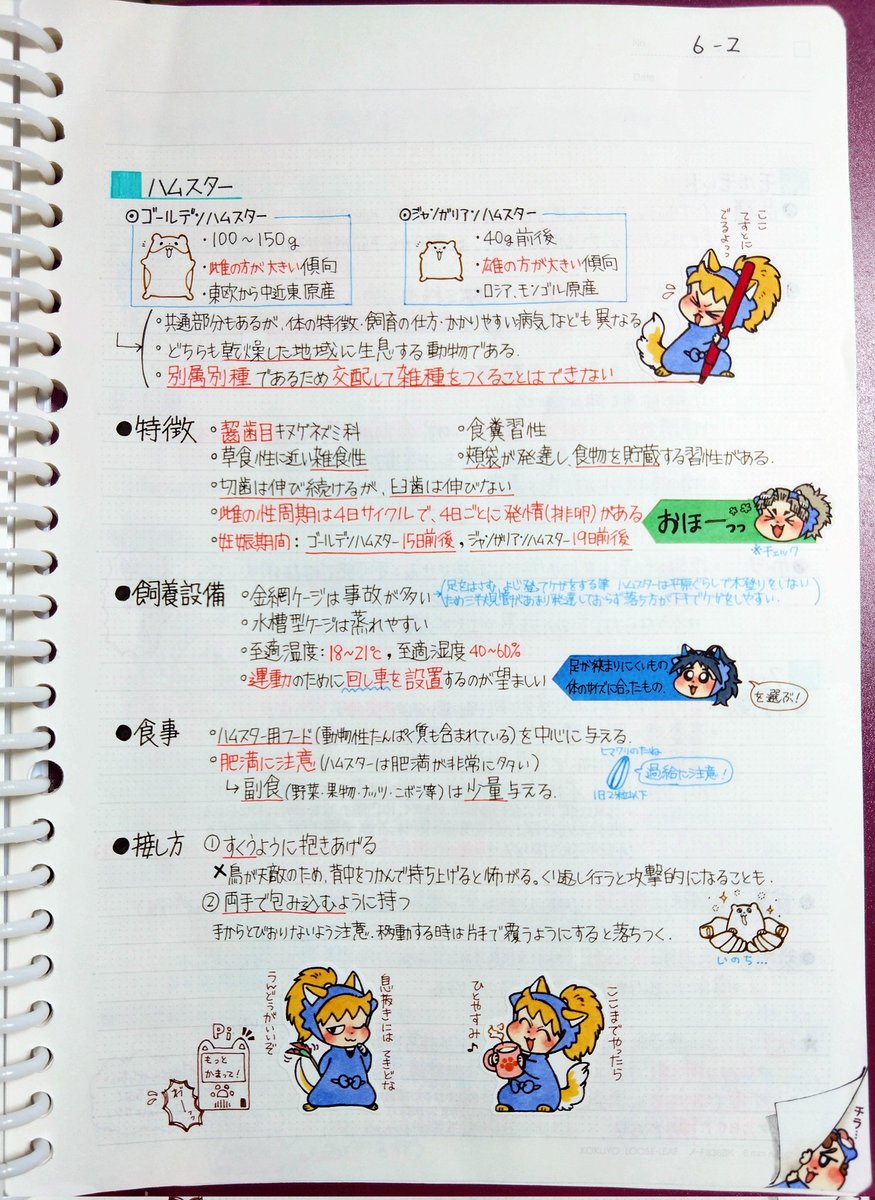 No.
6-2
Date
ハムスター
⊙ゴールデンハムスター
・100～150g
・雌の方が大きい傾向
・東欧から中近東原産
⊙ジャンガリアンハムスター
・40g前後
・雄の方が大きい傾向
・ロシア、モンゴル原産
ここ
てすとに
でるよっっ
◦共通部分もあるが、体の特徴・飼育の仕方・かかりやすい病気なども異なる
◦どちらも乾燥した地域に生息する動物である.
◦別属別種であるため交配して雑種をつくることはできない
●特徴 ◦齧歯目キヌゲネズミ科 ◦食糞習性
◦草食性に近い雑食性 ◦頬袋が発達し、食物を貯蔵する習性がある.
◦切歯は伸び続けるが、臼歯は伸びない
◦雌の性周期は4日サイクルで、4日ごとに発情(排卵)がある
おほーっっ
※チェック
◦妊娠期間: ゴールデンハムスター15日前後, ジャンガリアンハムスター19日前後
●飼養設備 ◦金網ケージは事故が多い→(足をはさむ、よじ登ってケガをする等 ハムスターは平原ぐらしで木登りをしない
ため三半規管があまり発達しておらず落ち方が下手でケガをしやすい.)
◦水槽型ケージは蒸れやすい
◦至適温度: 18~21℃, 至適湿度40~60%
◦運動のために回し車を設置するのが望ましい
足が挟まりにくいもの
体のサイズに合ったもの.
を選ぶ!
●食事 ◦ハムスター用フード(動物性たんぱく質も含まれている)を中心に与える.
◦肥満に注意(ハムスターは肥満が非常に多い)
↳副食(野菜・果物・ナッツ・ニボシ等)は少量与える.
ヒマワリのたね
過給に注意!
1日2粒以下
●接し方 ①すくうように抱きあげる
×鳥が天敵のため、背中をつかんで持ち上げると怖がる。くり返し行うと攻撃的になることも.
②両手で包み込むように持つ
手からとびおりないよう注意.移動する時は片手で覆うようにすると落ちつく.
いのち…
Pi
もっと
かまって!
息抜きには てきどな
うんどうがいいぞ
ここまでやったら
ひとやすみ♪
チラ…
KOKUYO LOOSE-LEAF